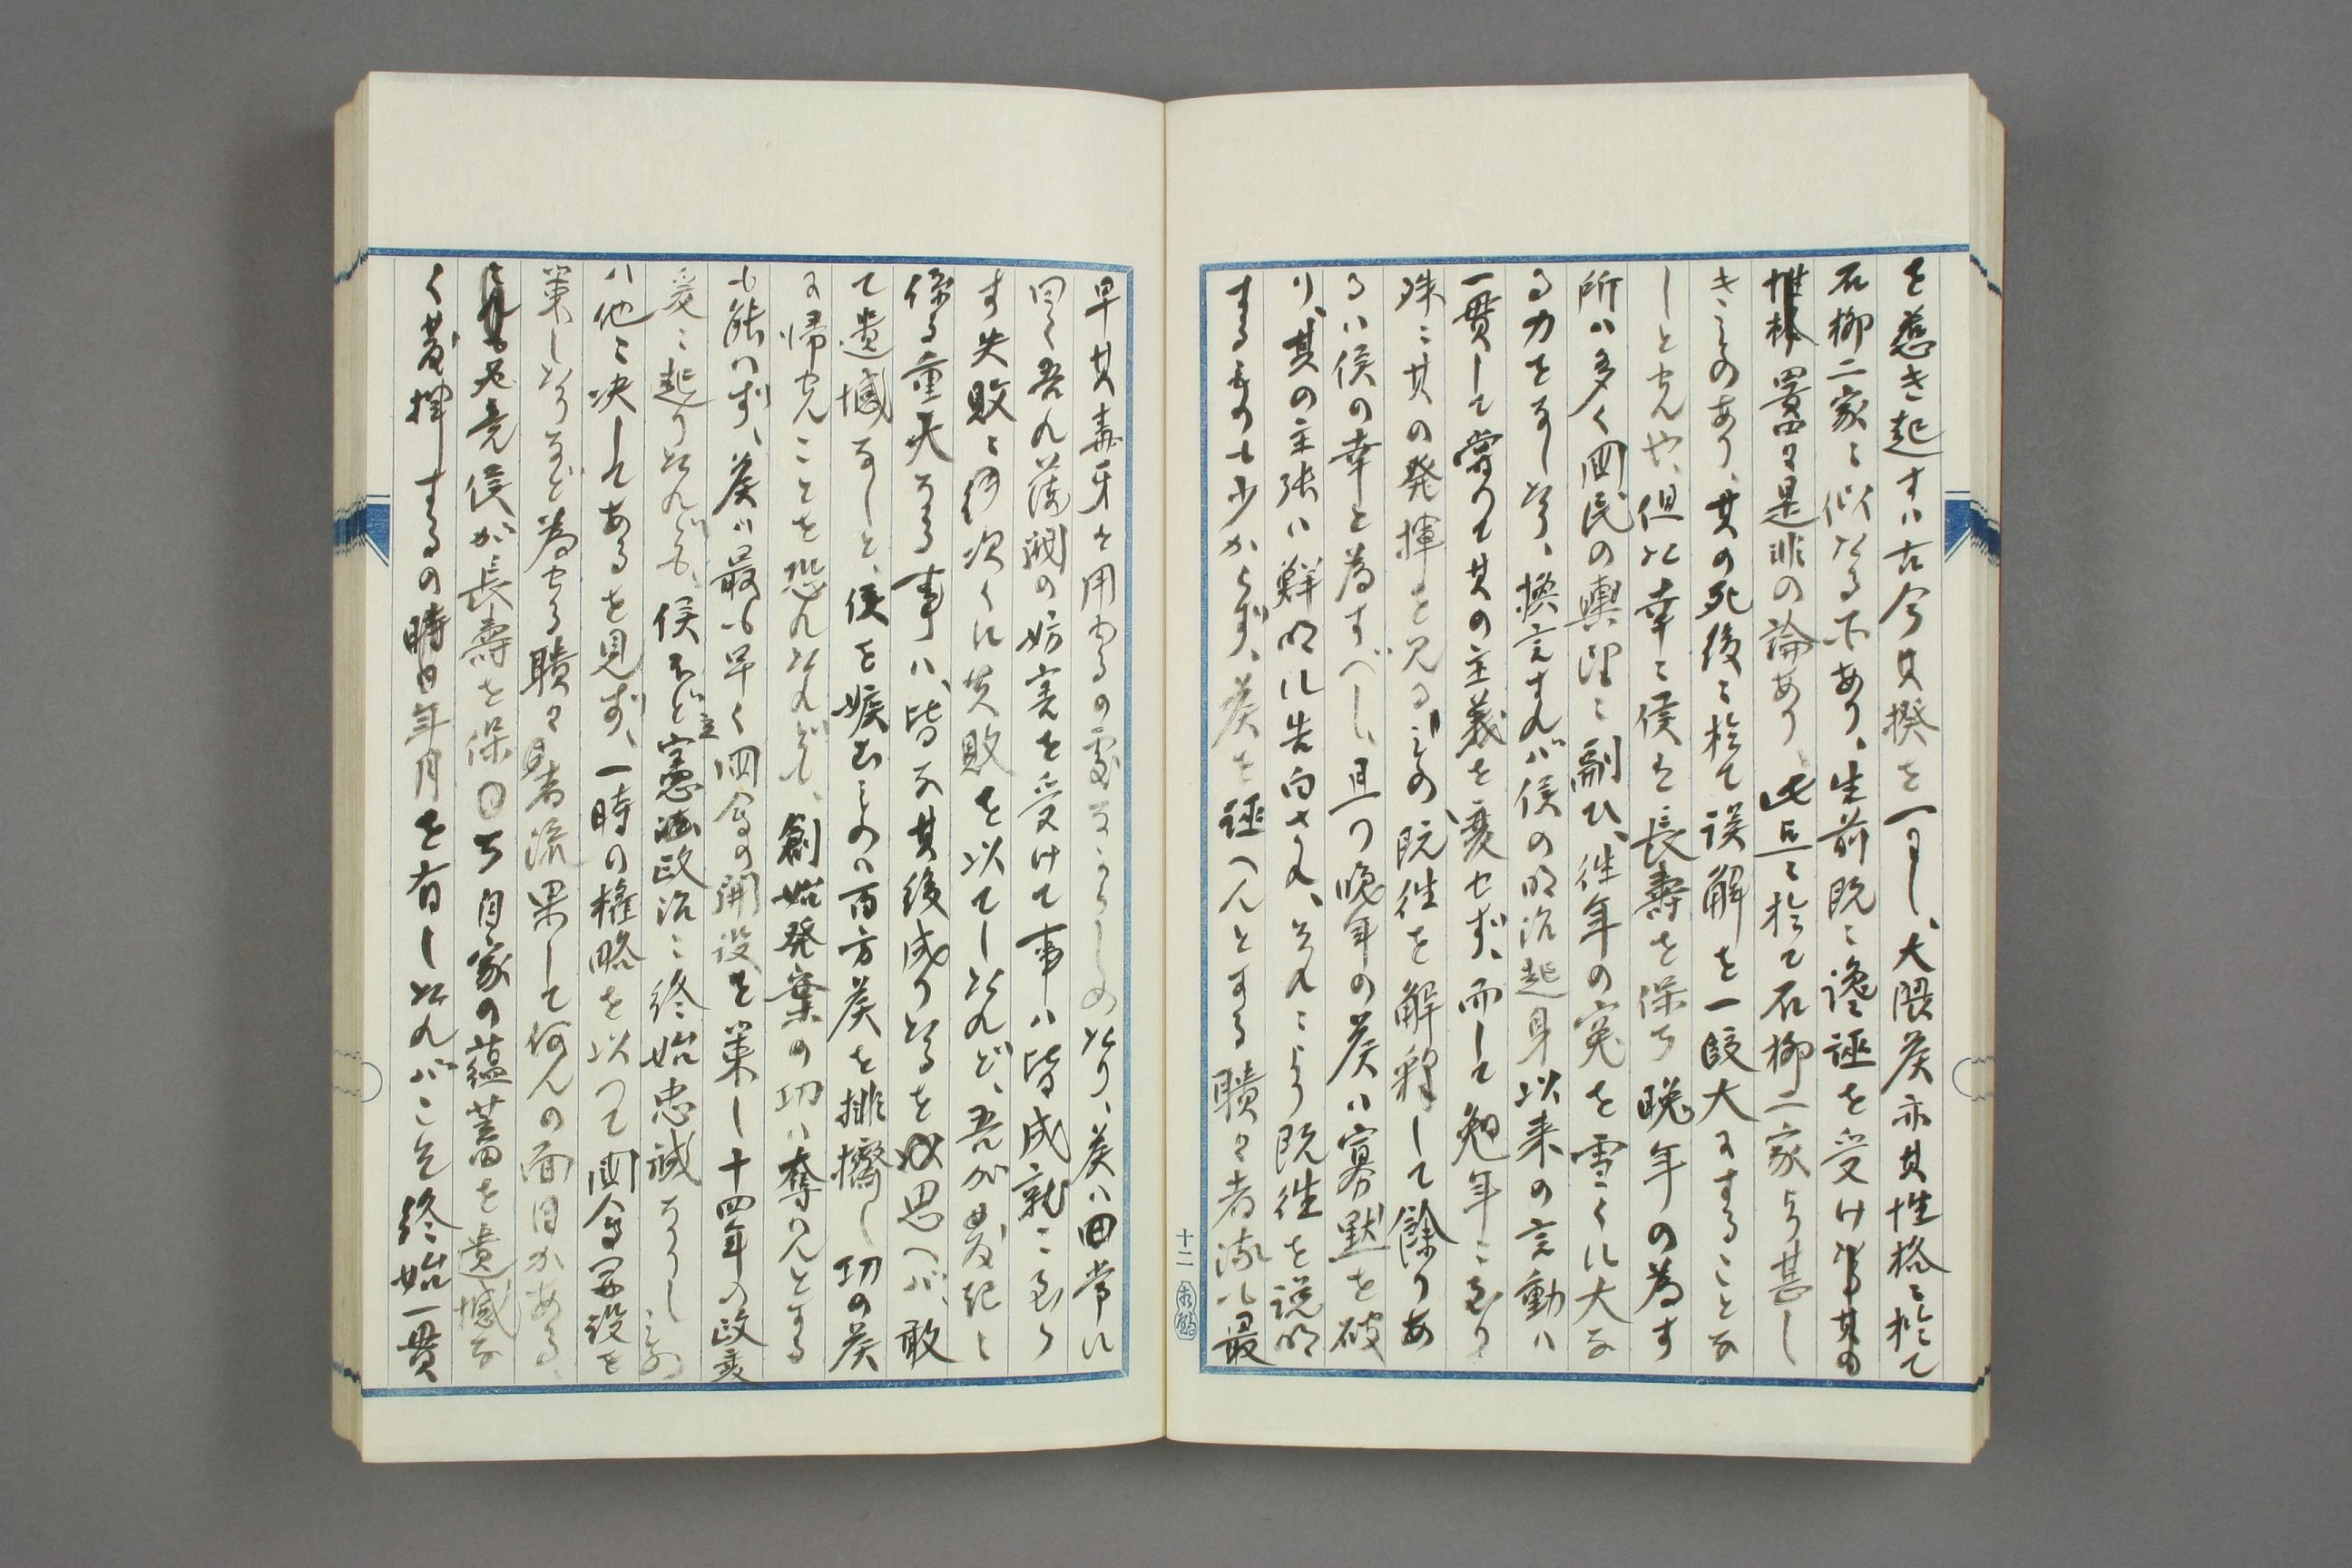 を惹き起すハ古今其揆を一にし、大隈侯亦其性格に於て
石柳二家に似たる所あり、生前既に讒誣を受け其の
置々是非の論あり、此点に於て石柳二家より甚し
きものあり、其の死後に於て誤解を一段大にすることな
しとせんや、但た幸に侯は長寿を保ち晩年の為す
所ハ多く国民の輿望に副ひ、往年の冤を雪くに大な
る力をなしたり、換言すれバ侯の明治起身以来の言動ハ
一貫して嘗つて其の主義を変せず、而して勉年に至り
殊に其の発揮を見る、その既往を解釈して余りあ
るハ侯の幸と為すべし、且つ晩年の侯ハ寡黙を破
り、其の主張ハ鮮明に告白され、それにより既往を説明
するもの亦少からず、侯を誣へんとする瞶々者流ハ最
十二
早其毒牙を用ゐるの処なからしめたり、侯ハ曰常に
曰く吾れ藩閥の妨害を受けて事ハ皆成就に至ら
ず失敗に何次くに失敗を以てしたれど、吾が発起に
係る重大なる事ハ、皆な其後成りたるを思へバ、敢
て遺憾なしと、侯を嫉むものハ百方侯を排擠し功の侯
に帰せんことを恐れたれども、創始発案の功ハ奪はんとする
も能はず、侯ハ最も早く国会の開設を策し十四年の政変
爰に起りたれども、侯ほど立憲政治に終始忠誠なりしもの
ハ他に決してあるを見ず、一時の権略を以つて国会開設を
策したりなど為せる瞶々者流果して何んの面目かある、
畢竟侯が長寿を保ち自家の蘊蓄を遺憾な
く発揮するの時日年月を有したれバこそ終始一貫